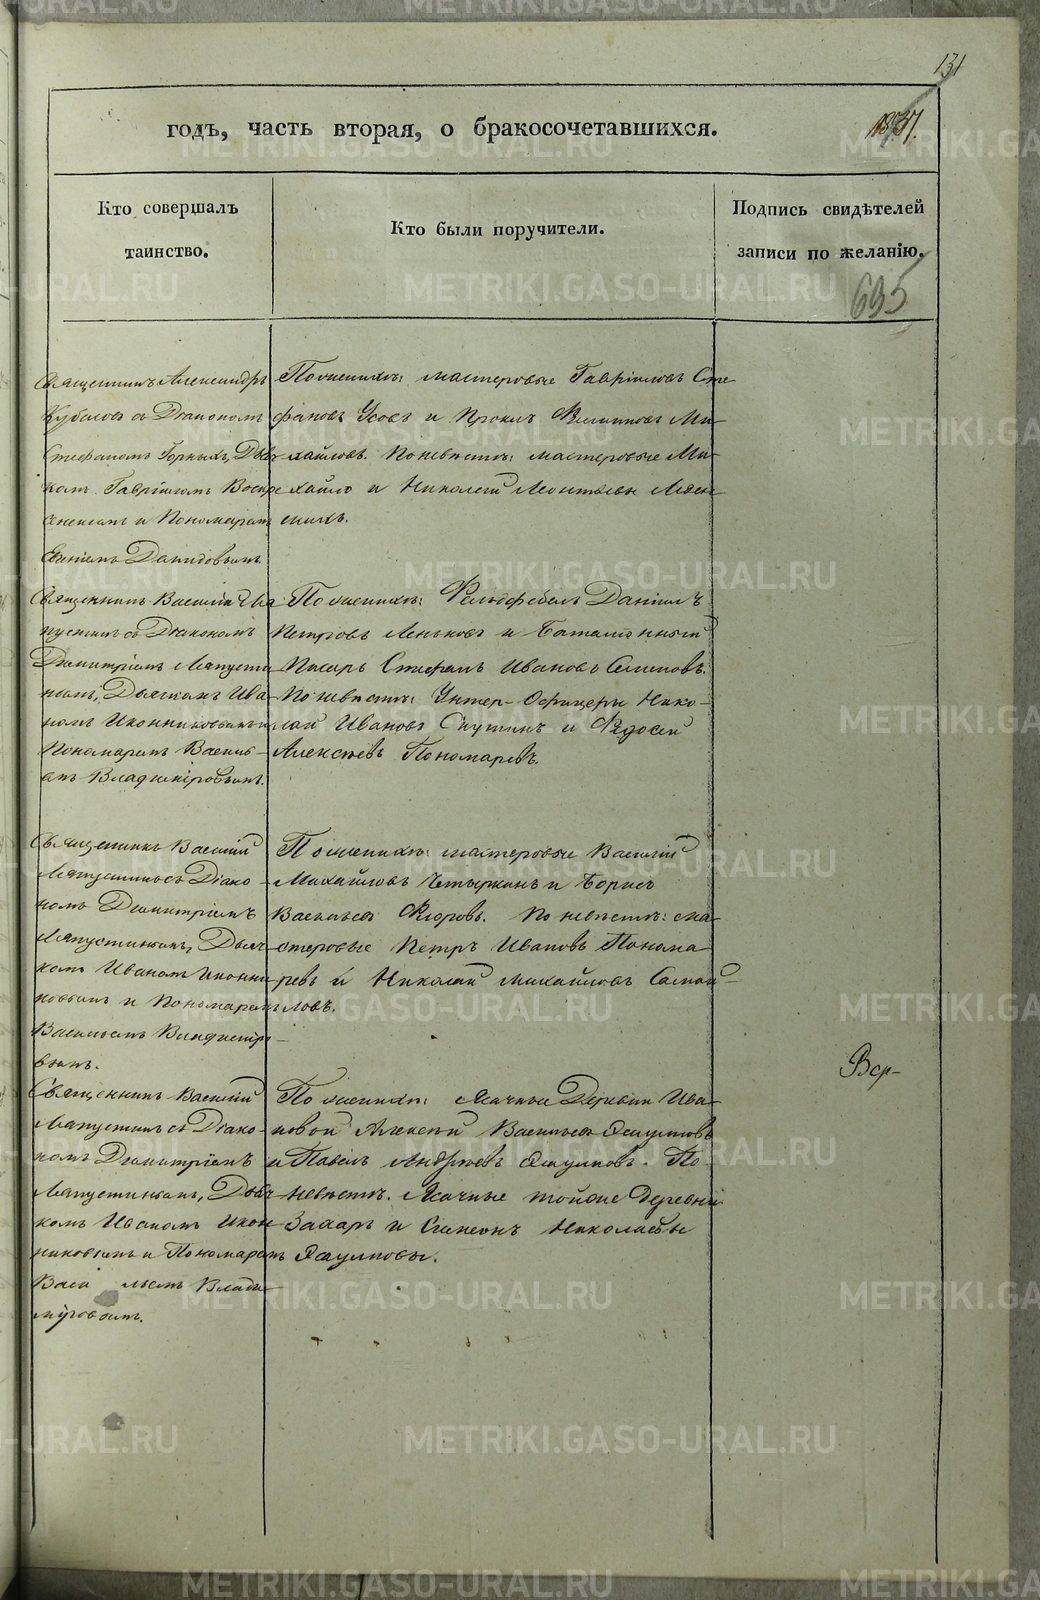 131
годъ, часть вторая, о бракосочетавшихся.
Кто совершалъ
таинство.
Кто были поручители.
Подпись свидѣтелей
записи по желанію.
695
Священникъ Александръ
съ Діакономъ
Стефаномъ Горныхъ, Дьяч
комъ Гавріиломъ Воскре
сенскимъ и Пономаремъ
Евгеніемъ Давидовымъ.
По женихѣ: мастеровые Гавріилъ Сте
фановъ Усовъ и Филипповъ Ми-
хайловъ. По невѣстѣ: мастеровые Ми-
хайло и Николай Леонтьевы
Священникъ Василій
съ Діакономъ
Димитріемъ Ляпусти
нымъ, Дьячкомъ Ива
номъ Иконниковымъ и
Пономаремъ Василь-
емъ Владиміровымъ.
По женихѣ: Фельдфебель Даніилъ
Петровъ Леньковъ и Баталіонный
Писарь Стефанъ Ивановъ Семеновъ.
По невѣстѣ: Унтер-Офицеры Нико-
лай Ивановъ и Ѳедосей
Алексѣевъ Пономаревъ.
Священникъ Василій
Ляпустинъ съ Діако-
номъ Димитріемъ
Ляпустинымъ, Дьяч-
комъ Иваномъ Иконни
ковымъ и Пономаремъ
Васильемъ Владиміро-
вымъ.
По женихѣ: мастеровые Василій
Михайловъ Четыркинъ и Борисъ
Васильевъ Ѳедоровъ. По невѣстѣ: ма-
стеровые Петръ Ивановъ Понома
ревъ и Николай Михайловъ Самой-
ловъ.
Вѣр-
Священникъ Василій
Ляпустинъ съ Діако-
номъ Димитріемъ
Ляпустинымъ, Дьяч-
комъ Иваномъ Икон
никовымъ и Пономаремъ
Васильемъ Влади-
міровымъ.
По женихѣ: Ясачные Деревни Ива-
новой Алексѣй Васильевъ Ясауловъ
и Павелъ Андреевъ Ясауловъ. По
невѣстѣ: Ясачные тойже Деревни
Захаръ и Симеонъ Николаевы
Ясауловы.
METRIKI.GASO-URAL.RU